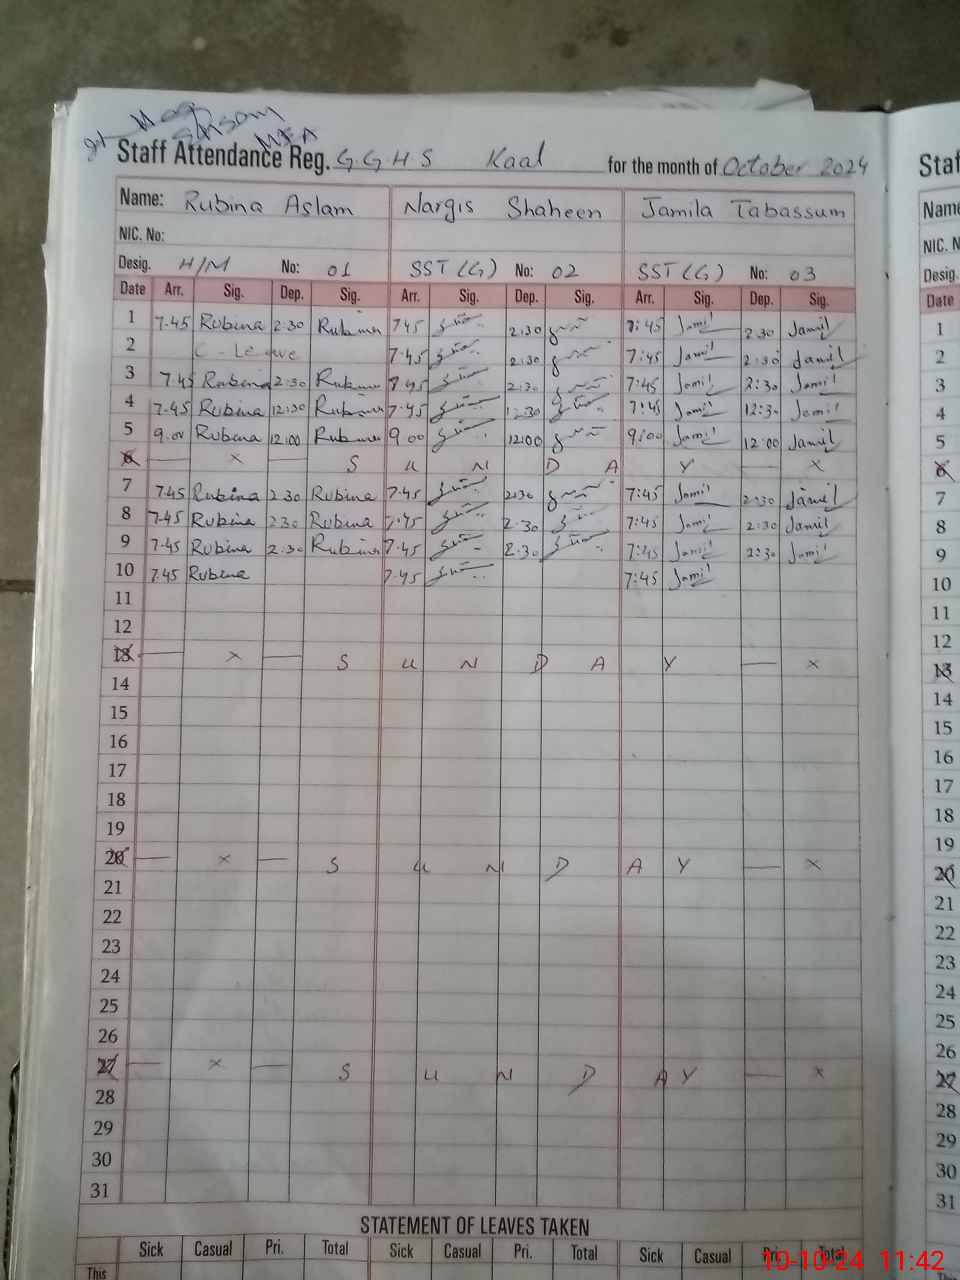 Staff Attendance Reg. G.G.H.S Kaal for the month of October 2024
Name: Rubina Aslam Nargis Shaheen Jamila Tabassum
NIC. No:
Desig. H/M No: 01 SST (G) No: 02 SST (G) No: 03
Date Arr. Sig. Dep. Sig. Arr. Sig. Dep. Sig. Arr. Sig. Dep. Sig.
1 7.45 Rubina 2:30 Rubina 7.45 2:30 7:45 Jamil 2:30 Jamil
2 C-Leave 7.45 2:30 7:45 Jamil 2:30 Jamil
3 7.45 Rubina 2:30 Rubina 7.45 2:30 7:45 Jamil 2:30 Jamil
4 7.45 Rubina 12:30 Rubina 7.45 12:30 7:45 Jamil 12:30 Jamil
5 9.00 Rubina 12:00 Rubina 9 00 12:00 9:00 Jamil 12:00 Jamil
6 — x — S U N D A Y — x
7 7.45 Rubina 2 30 Rubina 7.45 2:30 7:45 Jamil 2:30 Jamil
8 7.45 Rubina 2 30 Rubina 7.45 2:30 7:45 Jamil 2:30 Jamil
9 7.45 Rubina 2:30 Rubina 7.45 2:30 7:45 Jamil 2:30 Jamil
10 7.45 Rubina 7.45 7:45 Jamil
11
12
13 — x — S U N D A Y — x
14
15
16
17
18
19
20 — x — S U N D A Y — x
21
22
23
24
25
26
27 — x — S U N D A Y — x
28
29
30
31
STATEMENT OF LEAVES TAKEN
Sick Casual Pri. Total Sick Casual Pri. Total Sick Casual
This
Staf
Name
NIC. N
Desig.
Date
1
2
3
4
5
6
7
8
9
10
11
12
13
14
15
16
17
18
19
20
21
22
23
24
25
26
27
28
29
30
31
10-10-24 11:42